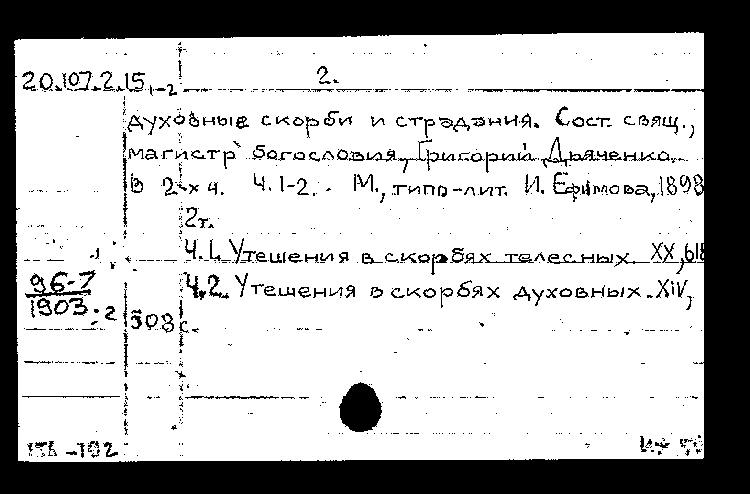 20.107.2.15 1-2
2.
духовные скорби и страдания. Сост. свящ.,
магистр богословия, Григорий Дьяченко.
В 2-х ч. Ч.1-2. М., типо-лит. И. Ефимова, 1898
2т.
Ч.1. Утешения в скорбях телесных. XX, 618
96-7
1903 : 2
Ч.2. Утешения в скорбях духовных. XIV,
508 с.